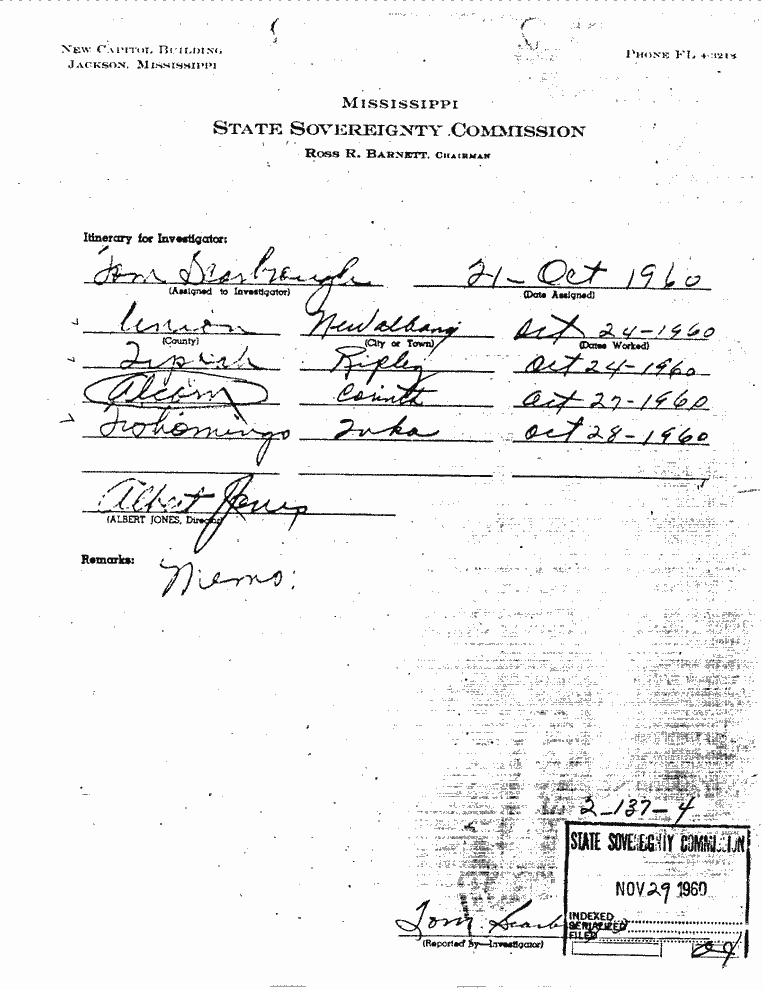 NEW CAPITOL BUILDING
JACKSON, MISSISSIPPI
PHONE FL 4-3218
MISSISSIPPI
STATE SOVEREIGNTY COMMISSION
ROSS R. BARNETT, CHAIRMAN
Itinerary for Investigator:
Tom Scarbrough 21- Oct 1960
(Assigned to Investigator) (Date Assigned)
Union New albany Oct 24-1960
(County) (City or Town) (Dates Worked)
Tippah Ripley Oct 24-1960
Alcorn Corinth Oct 27-1960
Tishomingo Iuka Oct 28-1960
Albert Jones
(ALBERT JONES, Director)
Remarks:
Memo:
2-137-4
STATE SOVEREIGNTY COMMISSION
NOV 29 1960
INDEXED
SERIALIZED
FILED
Tom Scarb
(Reported by—Investigator)